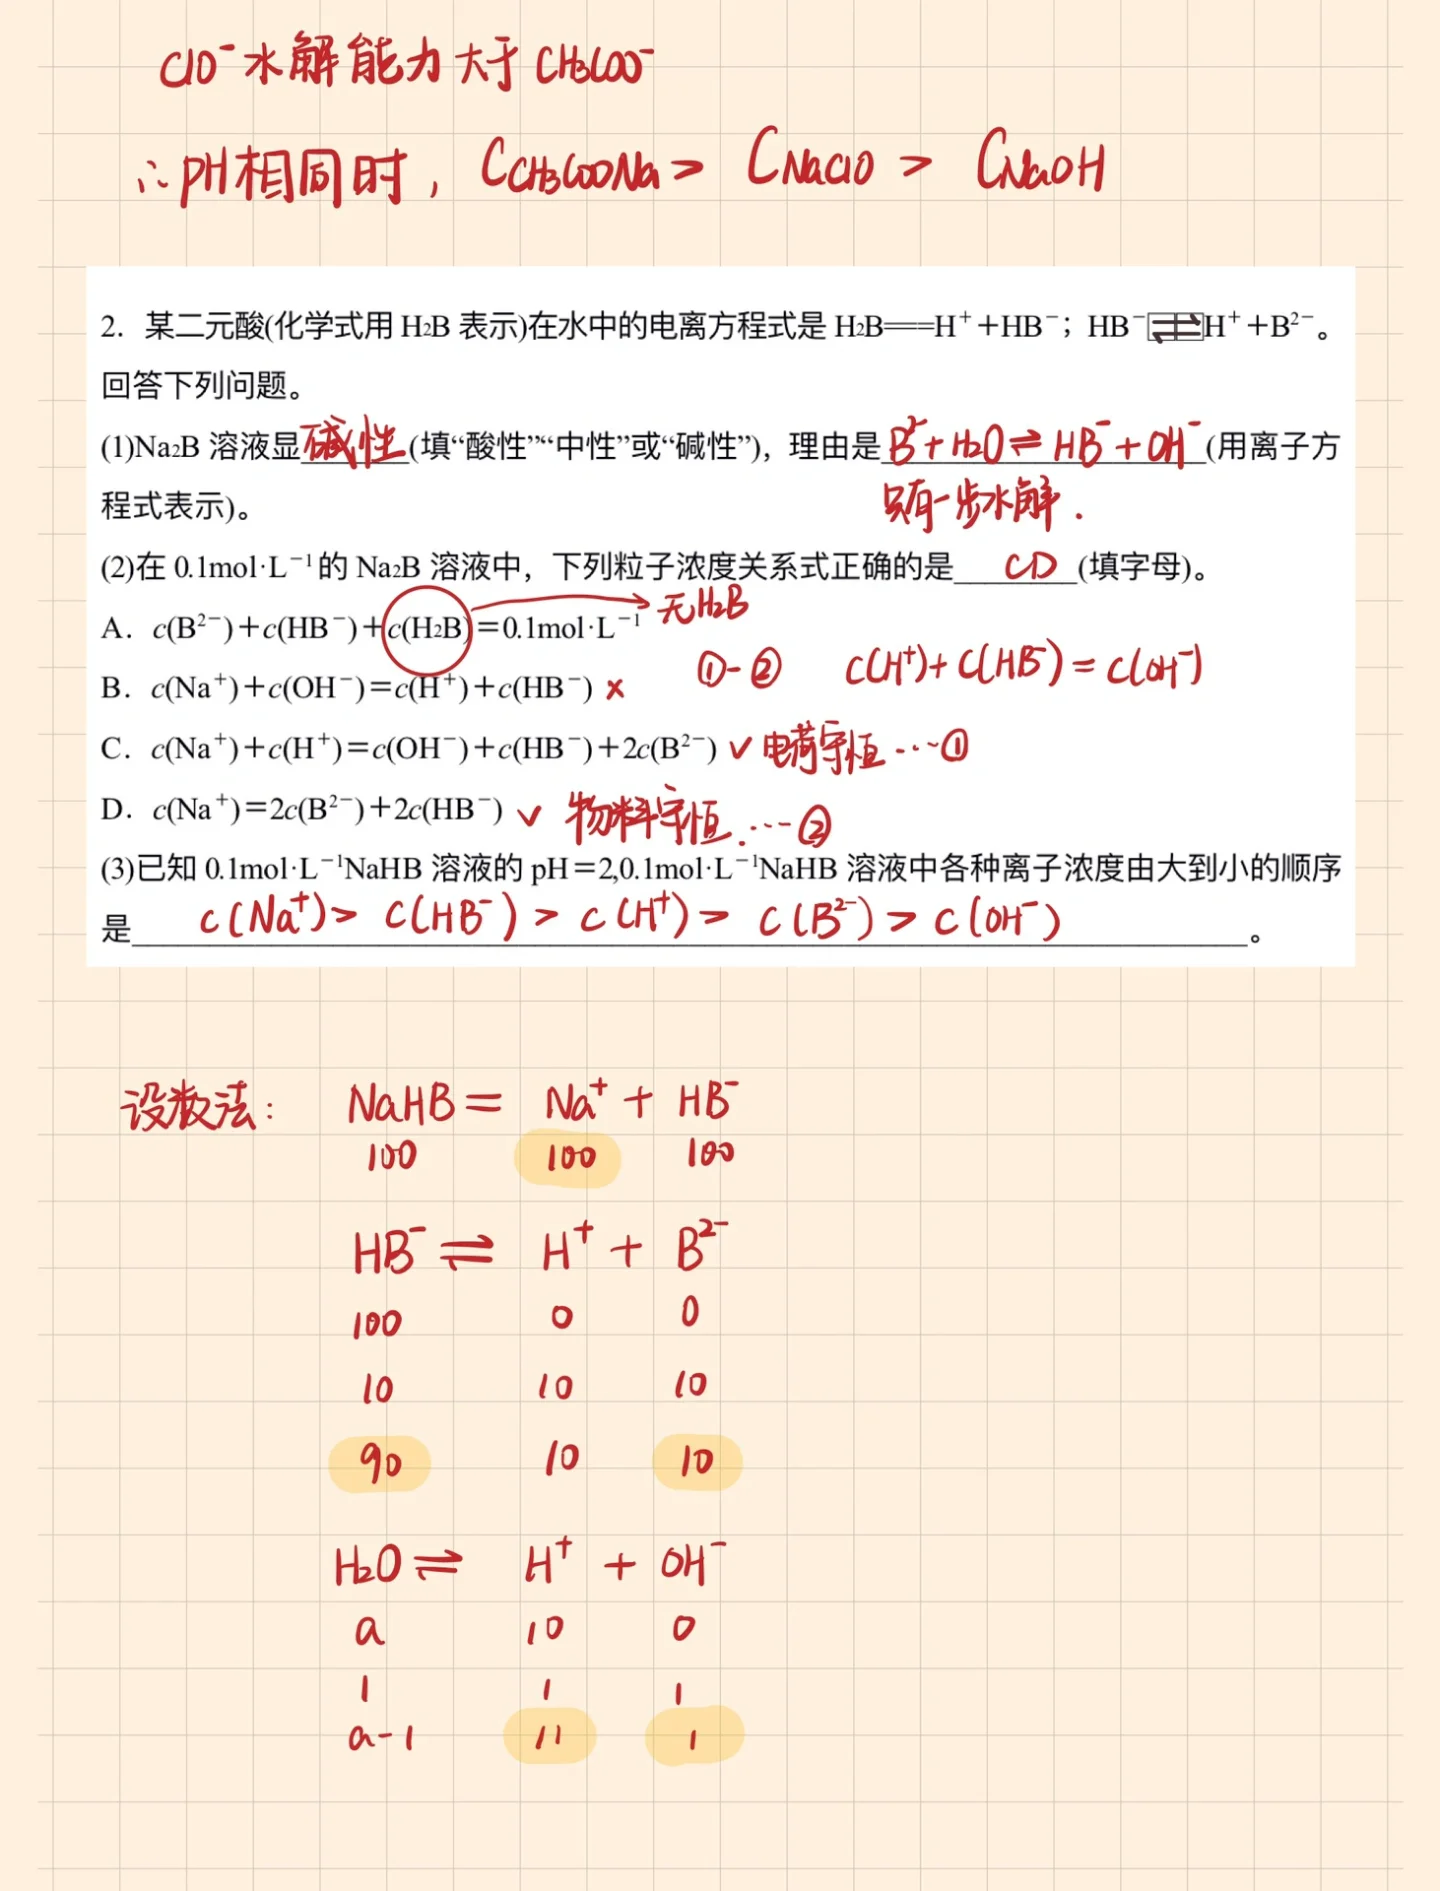 ClO⁻水解能力大于CH₃COO⁻
∴pH相同时, C CH₃COONa > C NaClO > C NaOH
2．某二元酸(化学式用 H₂B 表示)在水中的电离方程式是 H₂B===H⁺＋HB⁻；HB⁻⇌H⁺＋B²⁻。
回答下列问题。
(1)Na₂B 溶液显碱性(填“酸性”“中性”或“碱性”)，理由是B²⁻+H₂O⇌HB⁻+OH⁻(用离子方
程式表示)。
只有一步水解.
(2)在 0.1mol·L⁻¹的 Na₂B 溶液中，下列粒子浓度关系式正确的是 CD (填字母)。
A．c(B²⁻)＋c(HB⁻)＋c(H₂B)＝0.1mol·L⁻¹ 无H₂B
B．c(Na⁺)＋c(OH⁻)＝c(H⁺)＋c(HB⁻) × ①-② C(H⁺)+C(HB⁻)=C(OH⁻)
C．c(Na⁺)＋c(H⁺)＝c(OH⁻)＋c(HB⁻)＋2c(B²⁻) ✓ 电荷守恒…①
D．c(Na⁺)＝2c(B²⁻)＋2c(HB⁻) ✓ 物料守恒…②
(3)已知 0.1mol·L⁻¹NaHB 溶液的 pH＝2,0.1mol·L⁻¹NaHB 溶液中各种离子浓度由大到小的顺序
是 C(Na⁺)> C(HB⁻)> C(H⁺)> C(B²⁻)> C(OH⁻) 。
设数法: NaHB = Na⁺ + HB⁻
100 100 100
HB⁻ ⇌ H⁺ + B²⁻
100 0 0
10 10 10
90 10 10
H₂O ⇌ H⁺ + OH⁻
a 10 0
1 1 1
a-1 11 1